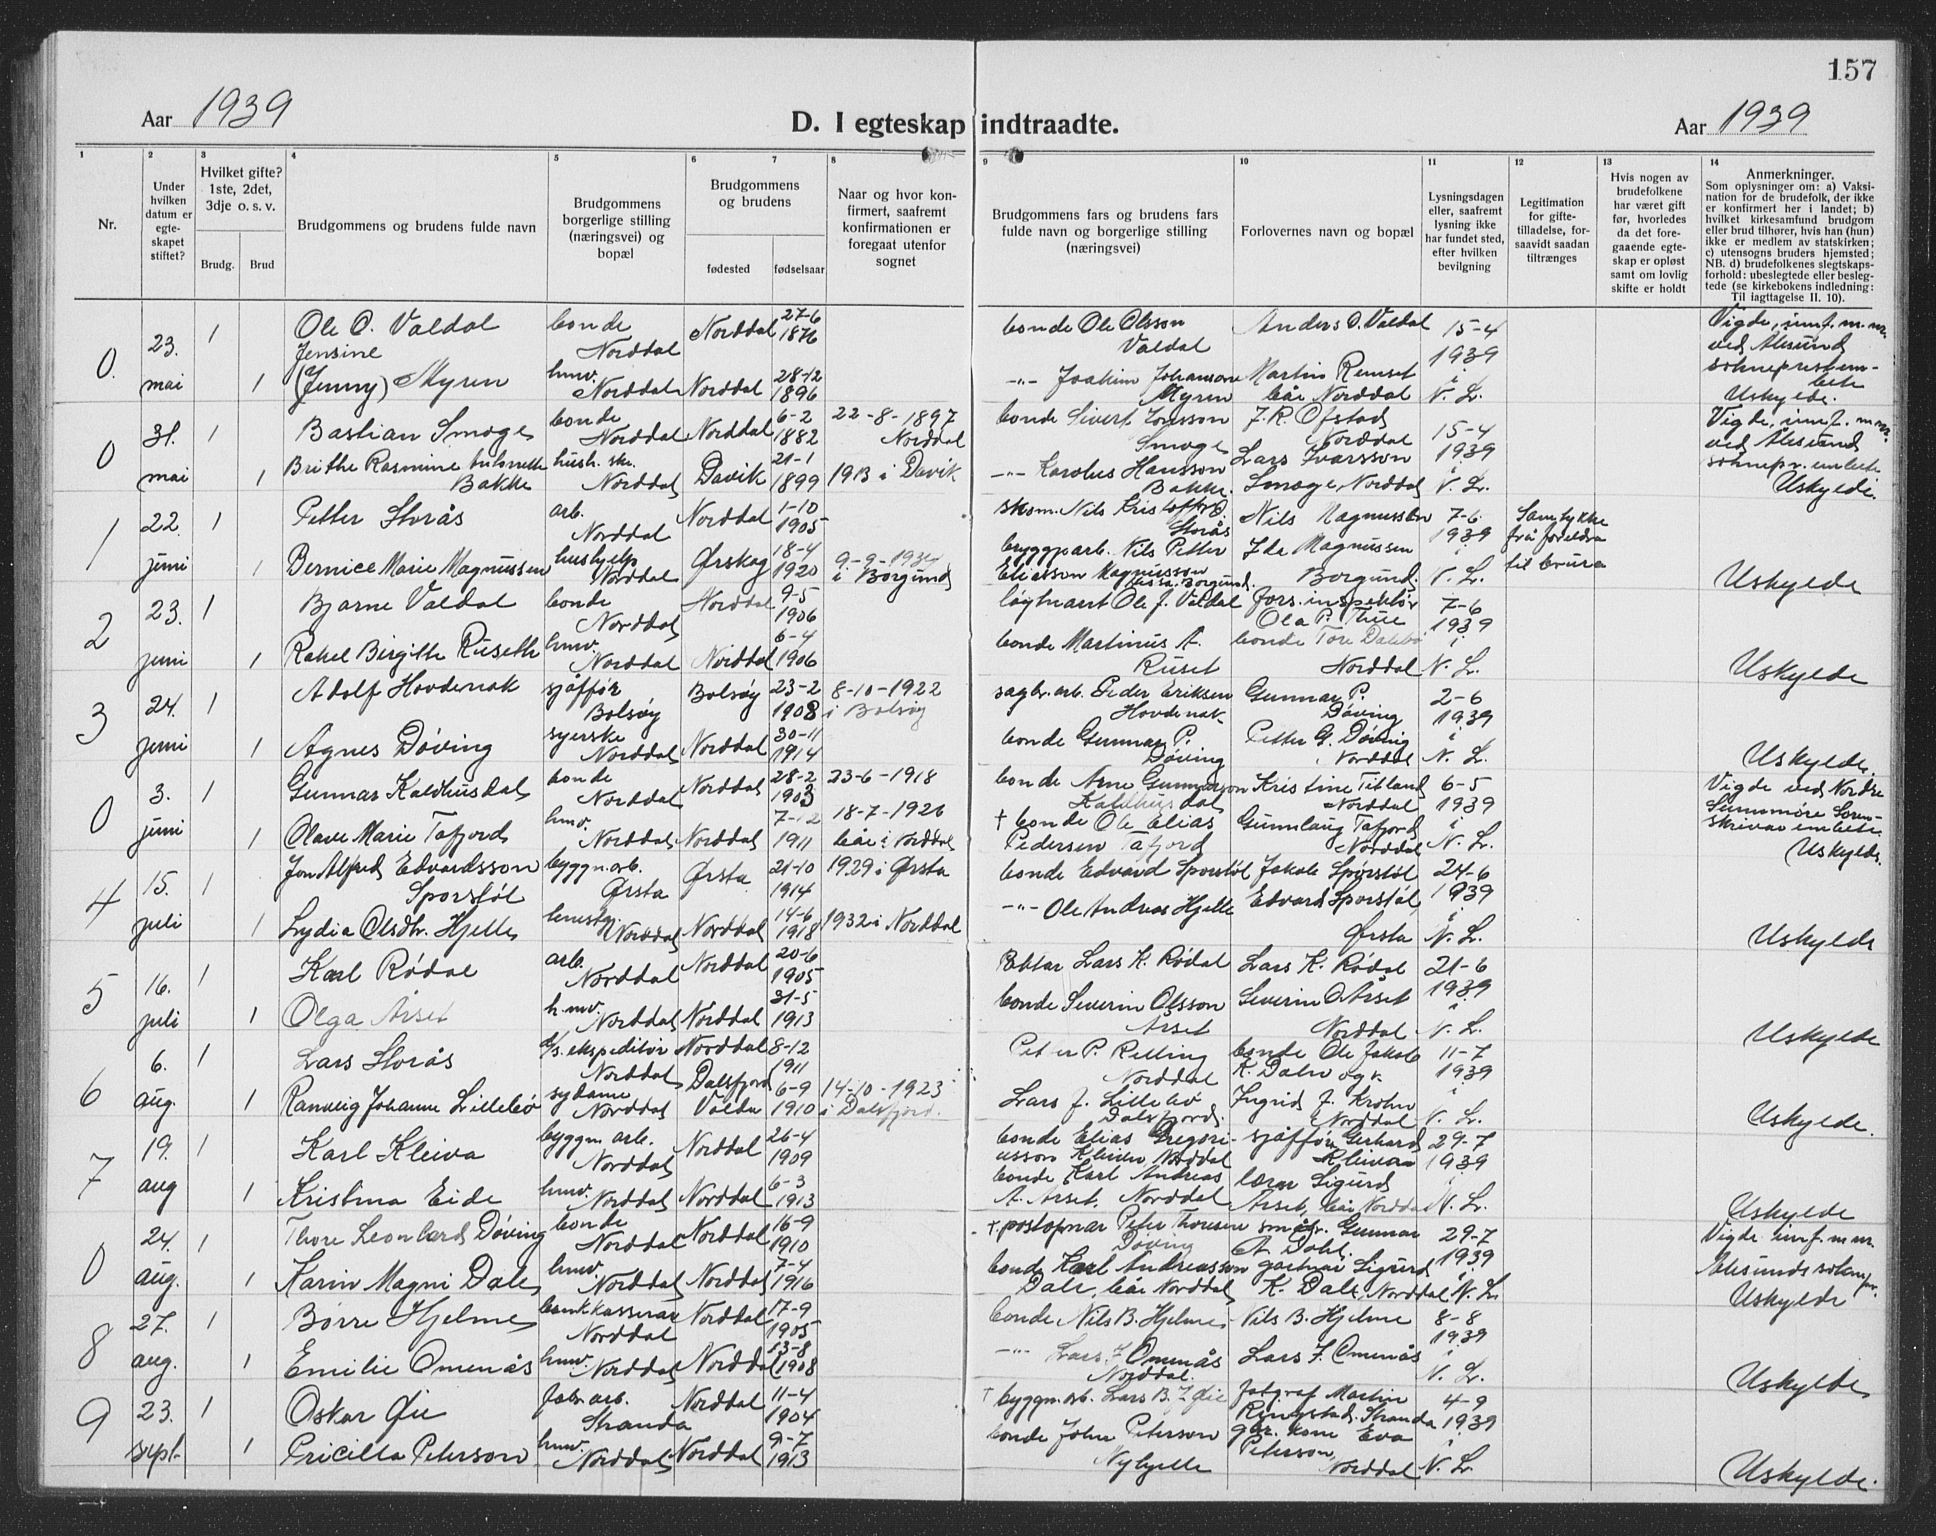 157
Aar 1939
D. I egteskap indtraadte.
Aar 1939
1 2 3 4 5 6 7 8 9 10 11 12 13 14
Nr.
Under hvilken datum er egte-skapet stiftet?
Hvilket gifte? 1ste, 2det, 3dje o. s. v.
Brudg. Brud
Brudgommens og brudens fulde navn
Brudgommens borgerlige stilling (næringsvei) og bopæl
Brudgommens og brudens
fødested fødselsaar
Naar og hvor kon-firmert, saafremt konfirmationen er foregaat utenfor sognet
Brudgommens fars og brudens fars fulde navn og borgerlige stilling (næringsvei)
Forlovernes navn og bopæl
Lysningsdagen eller, saafremt lysning ikke har fundet sted, efter hvilken bevilgning
Legitimation for gifte-tilladelse, for-saavidt saadan tiltrænges
Hvis nogen av brudefolkene har været gift før, hvorledes da det fore-gaaende egte-skap er opløst samt om lovlig skifte er holdt
Anmerkninger.
Som oplysninger om: a) Vaksi-nation for de brudefolk, der ikke er konfirmert her i landet; b) hvilket kirkesamfund brudgom eller brud tilhører, hvis han (hun) ikke er medlem av statskirken; c) utensogns bruders hjemsted; NB. d) brudefolkenes slegtskaps-forhold: ubeslegtede eller besleg-tede (se kirkebokens indledning: Til iagttagelse II. 10).
0. 23. mai 1 Ole O. Valdal bonde Norddal Norddal 27-6 1876 bonde Ole Olsson Valdal Anders O. Valdal 15-4 1939 i N. L. Vigde, imf. m.m. ved Ålesund sokneprestem-bete Uskylde.
1 Jensine (Jenny) Myren hmv. Norddal Norddal 28-12 1896 -"- Joakim Johanson Myren Martin Remset båe Norddal
0 31. mai 1 Bastian Smoge bonde Norddal Norddal 6-2 1882 22-8-1897 Norddal bonde Sivert Jonsson Smoge J. R. Ofstad Norddal 15-4 1939 i N. L. Vigde, imf. m.m. ved Ålesund soknepr. embete Uskylde.
1 Brithe Rasmine Antonette Bakke hush. ske. Norddal Davik 21-1 1899 1913 i Davik -"- Karolus Hansson Bakke. Lars Ivarsson Smoge, Norddal
1 22. juni 1 Petter Storås arb. Norddal Norddal 1-10 1905 skom. Nils Kristoffer O. Storås Nils Magnussen 7-6 1939 i N. L. Samtykke frå foreldra til brura Uskylde
1 Bernice Marie Magnussen hushjelp Norddal Ørskog 18-4 1920 9-9-1934 i Borgund byggp.arb. Nils Petter Eliasson Magnusson Borgund. Ida Magnussen Borgund.
2 23. juni 1 Bjarne Valdal bonde Norddal Norddal 9-5 1906 løytnant Ole J. Valdal fors.inspektør Ola P. Thue 7-6 1939 i N. L. Uskylde
1 Rakel Birgitte Ruseth hmv. Norddal Norddal 6-4 1906 bonde Martinus A. Ruset bonde Tore Dalsbø Norddal
3 24. juni 1 Adolf Hovdenak sjåffør Bolsøy Bolsøy 23-2 1908 8-10-1922 i Bolsøy sagbr.arb. Peder Eriksen Hovdenak Gunnar P. Døving 2-6 1939 i N. L. Uskylde.
1 Agnes Døving syerske Norddal Norddal 30-11 1914 bonde Gunnar P. Døving Petter G. Døving, Norddal
0 3. juni 1 Gunnar Kaldhusdal bonde Norddal Norddal 28-2 1903 23-6-1918 bonde Arne Gunnarson Kaldhusdal Kristine Titland Norddal 6-5 1939 i N. L. Vigde ved Nordre Sunnmøre Soren-skrivar embete. Uskylde.
1 Olave Marie Tafjord hmv. Norddal Norddal 7-12 1911 18-7-1926 båe i Norddal † bonde Ole Elias Pedersen Tafjord Gunnlaug Tafjord Norddal
4 15. juli 1 Jon Alfred Edvardsson Sporstøl byggn.arb. Ørsta Ørsta 21-10 1914 1929 i Ørsta bonde Edvard Sporstøl Jakob Sporstøl 24-6 1939 i N. L. Uskylde
1 Lydia Olsdtr. Hjelle Norddal Norddal 14-6 1918 1932 i Norddal -"- Ole Andreas Hjelle Edvard Sporstøl, Ørsta
5 16. juli 1 Karl Rødal arb. Norddal Norddal 20-6 1905 Lars K. Rødal Lars K. Rødal 21-6 1939 i N. L. Uskylde
1 Olga Årset h.mv. Norddal Norddal 31-5 1913 bonde Severin Olsson Årset Severin O Årset Norddal
6 6. aug. 1 Lars Storås d/s. ekspeditør Norddal Norddal 8-12 1911 Peter P. Relling Norddal bonde Ole Jakob K. Dalen og v. 11-7 1939 i N. L. Uskylde.
1 Ranveig Johanne Lillebø sydame Norddal Dalsfjord Volda 6-9 1910 14-10-1923 i Dalsfjord. Lars J. Lillebø Dalsfjord. Ingrid J. Krohn Norddal
7 19. aug 1 Karl Kleiva byggn. arb. Norddal Norddal 26-4 1909 bonde Elias Gregori-usson Kleiva Norddal sjåffør Gerhard Kleiva 29-7 1939 i N. L. Uskylde
1 Kristina Eide hmv. Norddal Norddal 6-3 1913 bonde Karl Andreas A. Årset, Norddal lærar Sigurd Årset, båe Norddal
0 24. aug. 1 Thore Leonhard Døving bonde Norddal Norddal 16-9 1910 † postopnar Peter Thoresen Døving småbr. Gunnar A. Dahl. 29-7 1939 i N. L. Vigde imf. m.m. Ålesunds soknepr. Uskylde
1 Karin Magni Dale hmv. Norddal Norddal 7-4 1916 bonde Karl Andreasson Dale, båe Norddal gartnar Sigurd K. Dale, Norddal
8 27. aug. 1 Børre Hjelme bankkasserar Norddal Norddal 17-9 1905 bonde Nils B. Hjelme Nils B. Hjelme 8-8 1939 i N. L. Uskylde
1 Emilie Omenås hmv. Norddal Norddal 13-8 1908 -"- Lars J. Omenås Norddal. Lars J. Omenås
9 23. sept. 1 Oskar Øie fabr.arb. Stranda Norddal 11-4 1904 † byggn.arb. Lars B. J Øie fotograf Martin Ringstad, Stranda 4-9 1939 i N. L. Uskylde.
1 Pricilla Peterson hmv. Norddal Norddal 9-7 1913 bonde John Peterson Nyhjelle gbr. kone Eva Peterson, Norddal